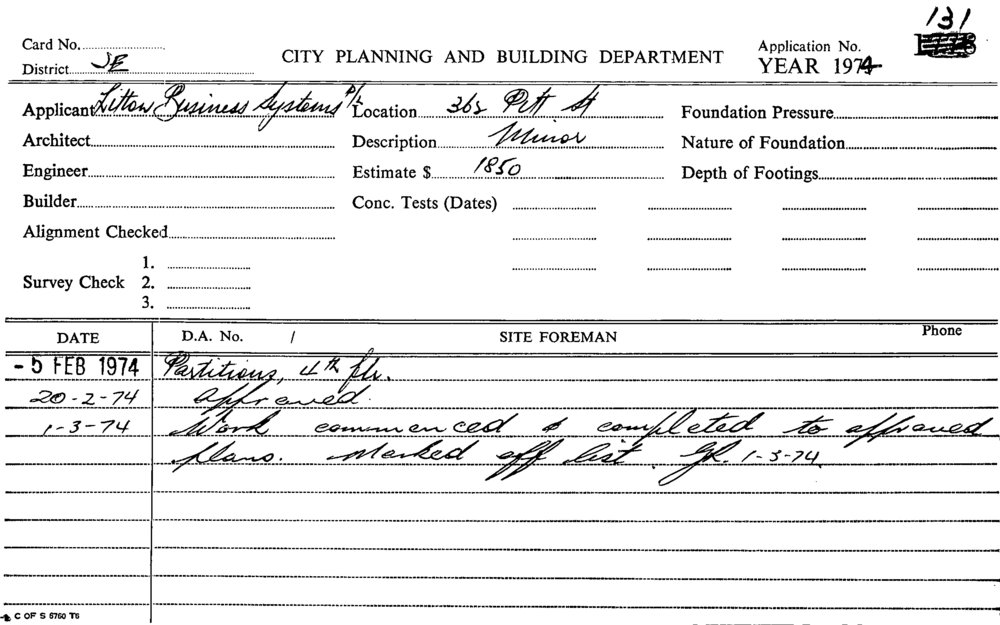 131
Card No.
District JE
CITY PLANNING AND BUILDING DEPARTMENT
Application No.
YEAR 1974
Applicant Litton Business Systems P/L
Location 362 Pitt St
Foundation Pressure
Architect
Description Minor
Nature of Foundation
Engineer
Estimate $ 1850
Depth of Footings
Builder
Conc. Tests (Dates)
Alignment Checked
Survey Check
1.
2.
3.
DATE
D.A. No. /
SITE FOREMAN
Phone
-5 FEB 1974 Partitions, 4th flr.
20-2-74 approved.
1-3-74 Work commenced & completed to approved
plans. Marked off list. 1-3-74
C OF S 6760 T6